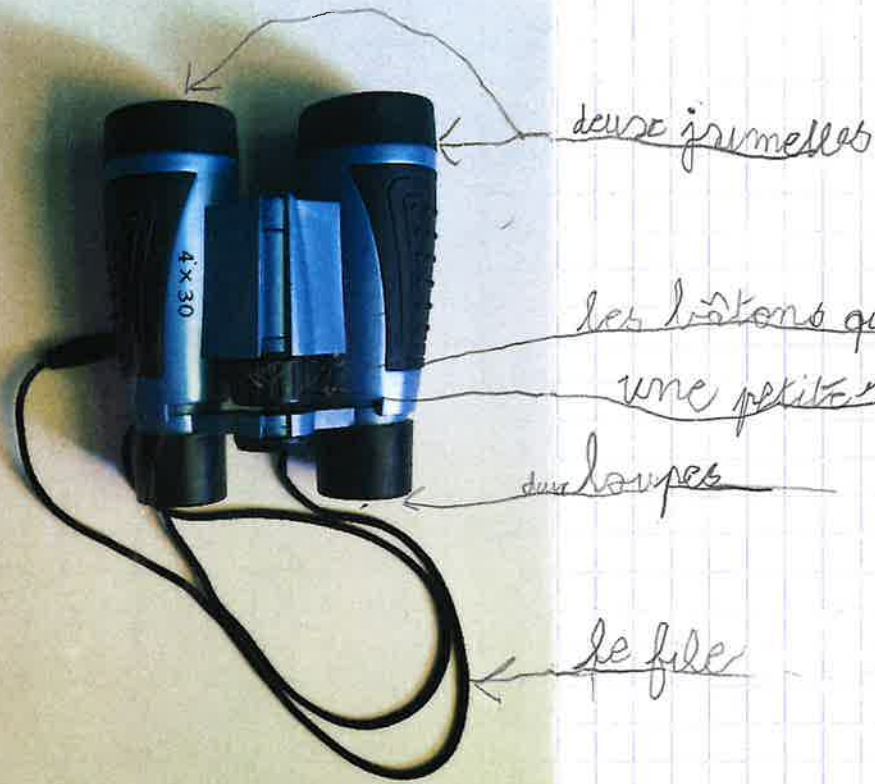 deux jumelles
4 x 30
les bâtons qu
une petite
deux loupes
le file